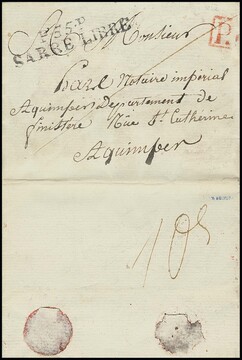 P.55.P
SARRE LIBRE
P.
A Monsieur
Notaire impérial
Aquimper Departement de
finistére Rüe St. Catherine
Aquimper